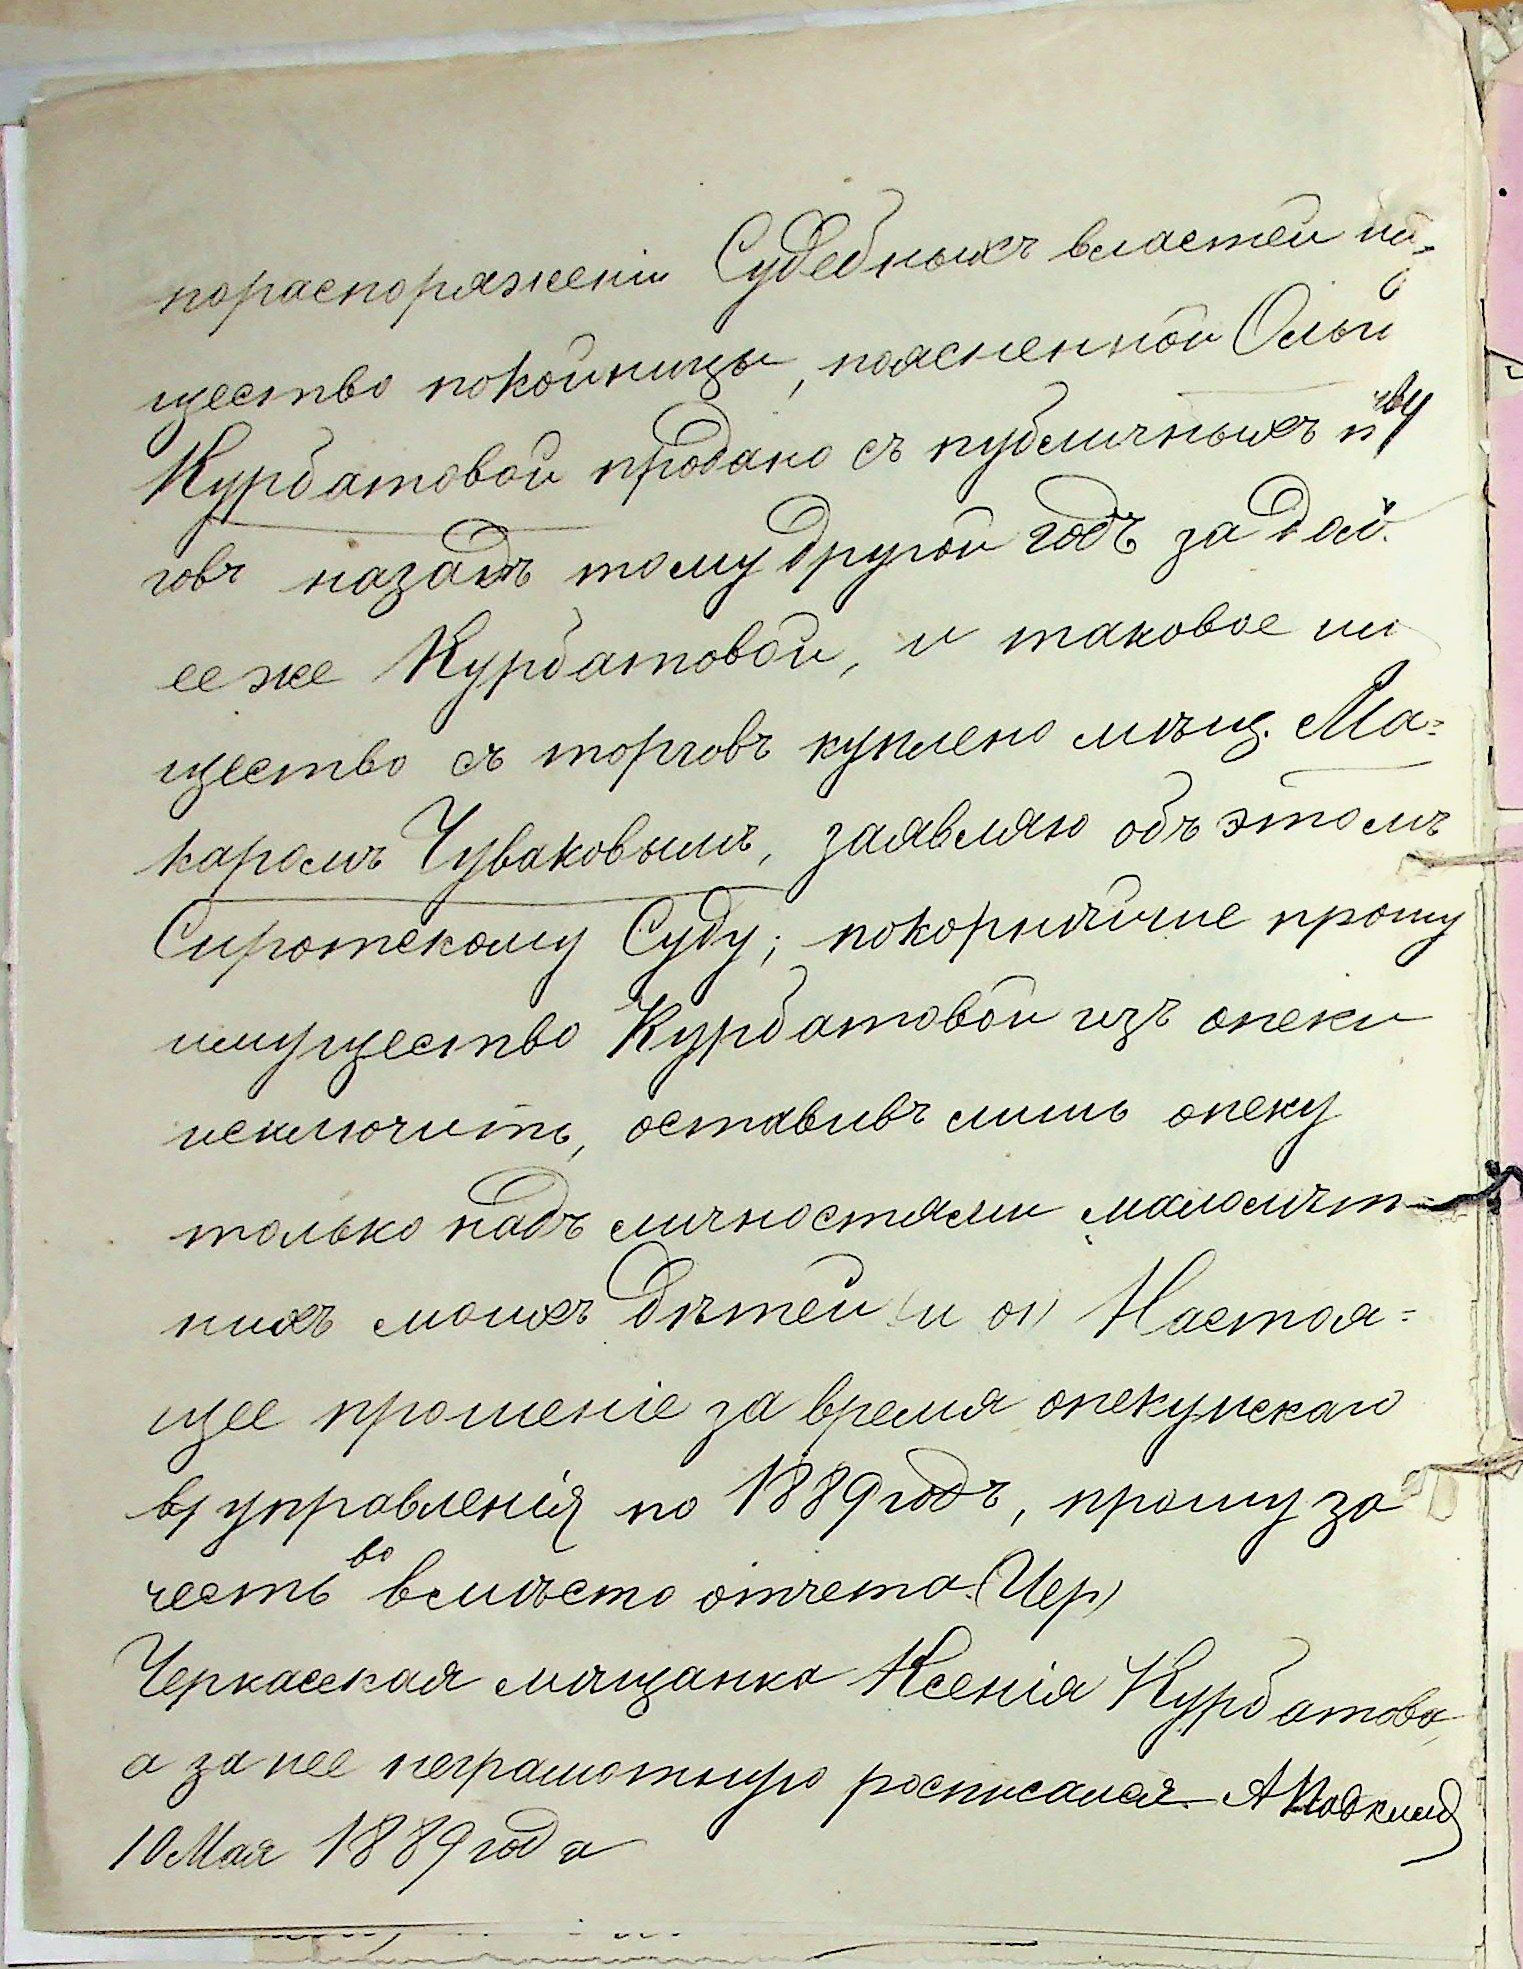 пораспоряженію Судебныхъ властей им-
щество покойницы, поясненной Ольги
Курбатовой продано съ публичныхъ
говъ назадъ тому другой годъ за дол.
ее же Курбатовой, и таковое им
щество съ торговъ куплено мѣщ. Ма=
каромъ Чуваковымъ, заявляю объ этомъ
Сиротскому Суду; покорнѣйше прошу
имущество Курбатовой изъ опеки
исключить, оставивъ лишь опеку
только надъ личностями малолѣт-
нихъ моихъ дѣтей (и он) Настоя=
щее прошеніе за время опекунскаго
управленія по 1889 годъ, прошу за
честь во вмѣсто отчета. (Чер)
Черкасская мѣщанка Ксенія Курбатова,
а за нее неграмотную росписался А
10 Мая 1889 года